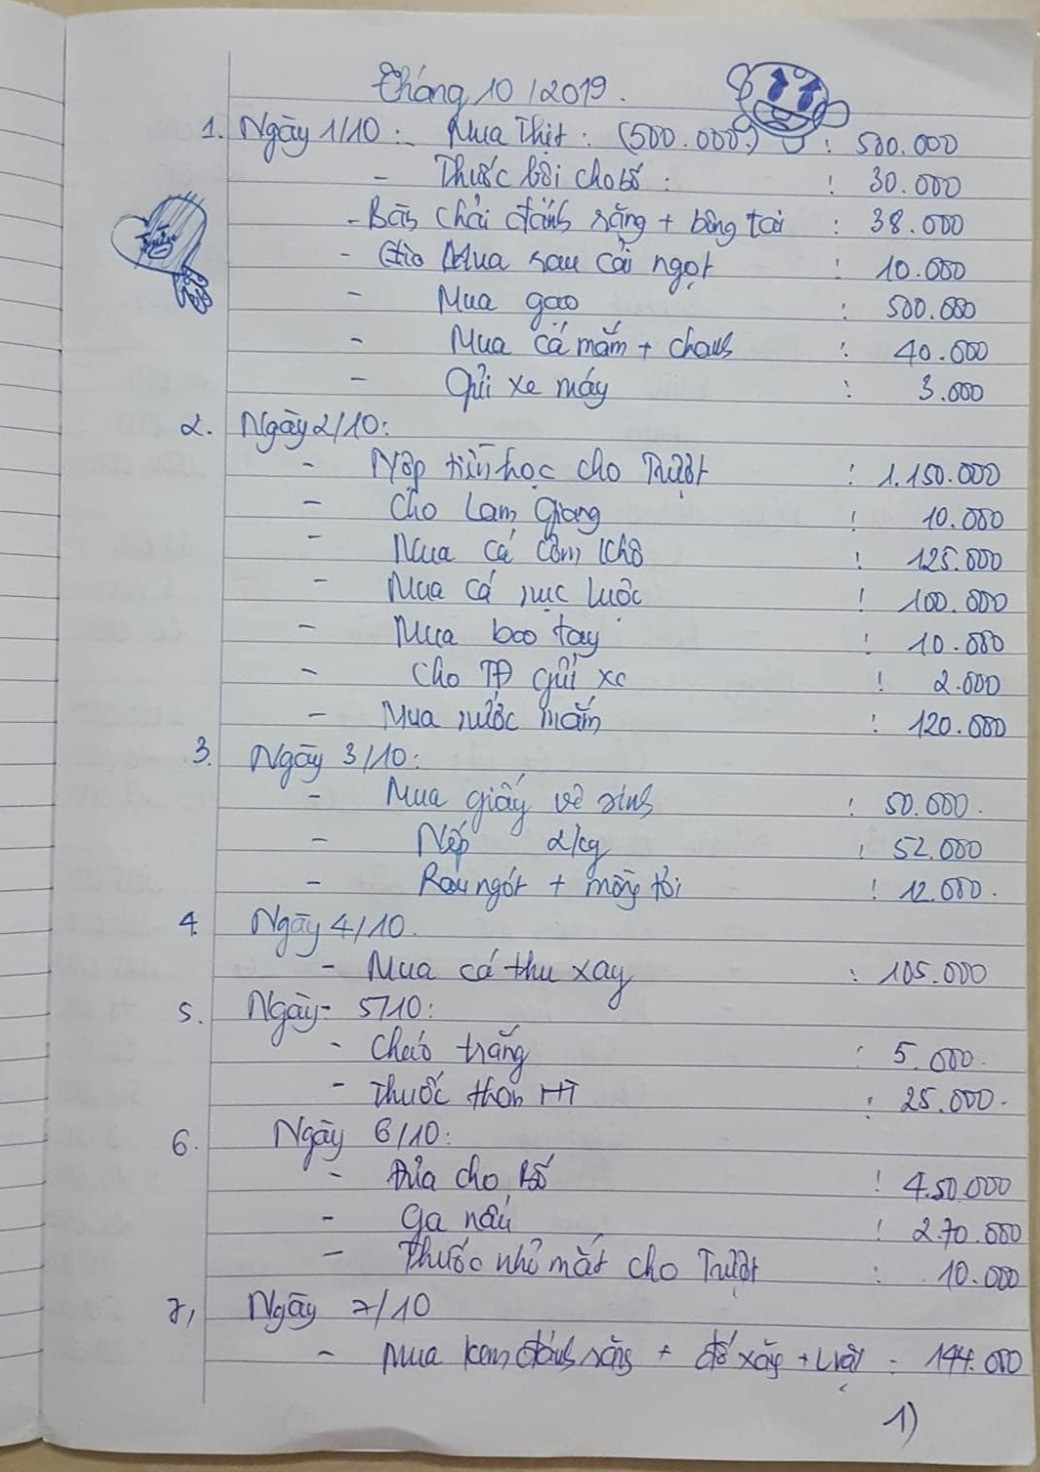 Tháng 10/2019.
1. Ngày 1/10: - Mua Thịt: (500.000đ) : 500.000
- Thuốc bôi cho bố : : 30.000
- Bàn chải đánh răng + bông tai : 38.000
- Mua rau cải ngọt : 10.000
- Mua gạo : 500.000
- Mua cá mắm + chanh : 40.000
- Gửi xe máy : 3.000
2. Ngày 2/10:
- Nộp tiền học cho Trượt : 1.150.000
- Cho Lam Giang : 10.000
- Mua cá cơm khô : 125.000
- Mua cá nục luộc : 100.000
- Mua bao tay : 10.000
- Cho TĐ gửi xe : 2.000
- Mua nước mắm : 120.000
3. Ngày 3/10:
- Mua giấy vệ sinh : 50.000.
- Nếp 2kg : 52.000
- Rau ngót + mồng tơi : 12.000.
4. Ngày 4/10.
- Mua cá thu xay : 105.000
5. Ngày - 5/10:
- Cháo trắng : 5.000.
- Thuốc : 25.000.
6. Ngày 6/10:
- Đưa cho bố : 450.000
- Ga nấu : 270.000
- Thuốc nhỏ mắt cho Trượt : 10.000
7, Ngày 7/10
- Mua kem đánh răng + đổ xăng + - 144.000
1)